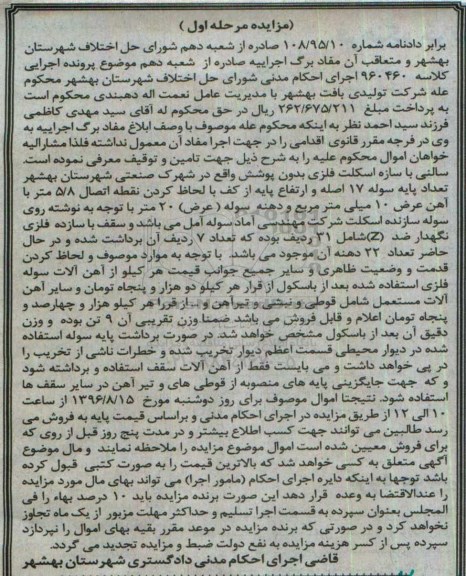 (مزایده مرحله اول)
برابر دادنامه شماره ۱۰۸/۹۵/۱۰ صادره از شعبه دهم شورای حل اختلاف شهرستان
بهشهر و متعاقب آن مفاد برگ اجراییه صادره از شعبه دهم موضوع پرونده اجرایی
کلاسه ۹۶۰۴۶۰ اجرای احکام مدنی شورای حل اختلاف شهرستان بهشهر محکوم
عله شرکت تولیدی بافت بهشهر با مدیریت عامل نعمت اله دهبندی محکوم است
به پرداخت مبلغ ۲۶۲/۶۷۵/۲۱۱ ریال در حق محکوم له آقای سید مهدی کاظمی
فرزند سید احمد نظر به اینکه محکوم عله موصوف با وصف ابلاغ مفاد برگ اجراییه به
وی در فرجه مقرر قانونی اقدامی را در جهت اجرا مفاد آن معمول نداشته فلذا مشارالیه
خواهان اموال محکوم علیه را به شرح ذیل جهت تامین و توقیف معرفی نموده است.
سالنی با سازه اسکلت فلزی بدون پوشش واقع در شهرک صنعتی شهرستان بهشهر
تعداد پایه سوله ۱۷ اصله و ارتفاع پایه از کف با لحاظ کردن نقطه اتصال ۵/۸ متر با
آهن عرض ۱۰ میلی متر مربع و دهنه سوله (عرض) ۲۰ متر با توجه به نوشته روی
سوله سازنده اسکلت شرکت مهندسی آماد سوله آمل می باشد و سقف با سازه فلزی
نگهدار ضد (Z) شامل ۳۱ ردیف بوده که تعداد ۷ ردیف آن برداشت شده و در حال
حاضر تعداد ۲۲ دهنه آن موجود می باشد. با توجه به موارد موصوف و لحاظ کردن
قدمت و وضعیت ظاهری و سایر جمیع جوانب قیمت هر کیلو از آهن آلات سوله
فلزی استفاده شده بعد از باسکول از قرار هر کیلو دو هزار و پنجاه تومان و سایر آهن
آلات مستعمل شامل قوطی و نبشی و تیرآهن و ... از قرار هر کیلو هزار و چهارصد و
پنجاه تومان اعلام و قابل فروش می باشد ضمنا وزن تقریبی آن ۹ تن بوده و وزن
دقیق آن بعد از باسکول مشخص خواهد شد. در صورت برداشت پایه سوله استفاده
شده در دیوار محیطی قسمت اعظم دیوار تخریب شده و خطرات ناشی از تخریب را
در پی خواهد داشت و می بایست فقط از آهن آلات سقف استفاده و برداشته شود
و که جهت جایگزینی پایه های منصوبه از قوطی های و تیر آهن در سایر سقف ها
استفاده شود. نتیجتا اموال موصوف برای روز دوشنبه مورخ ۱۳۹۶/۸/۱۵ از ساعت
۱۰ الی ۱۲ از طریق مزایده در اجرای احکام مدنی و براساس قیمت پایه به فروش می
رسد طالبین می توانند جهت کسب اطلاع بیشتر و در مدت پنج روز قبل از روی که
برای فروش معیین شده است اموال موضوع مزایده را ملاحظه نمایند و مال موضوع
آگهی متعلق به کسی خواهد شد که بالاترین قیمت را به صورت کتبی قبول کرده
باشد توجها به اینکه دایره اجرای احکام (مامور اجرا) می تواند بهای مال مورد مزایده
را عندالاقتضا به وعده قرار دهد این صورت برنده مزایده باید ۱۰ درصد بهاء را فی
المجلس بعنوان سپرده به قسمت اجرا تسلیم و حداکثر مهلت مزبور از یک ماه تجاوز
نخواهد کرد و در صورتی که برنده مزایده در موعد مقرر بقیه بهای اموال را نپردازد
سپرده پس از کسر هزینه مزایده به نفع دولت ضبط و مزایده تجدید می گردد.
قاضی اجرای احکام مدنی دادگستری شهرستان بهشهر